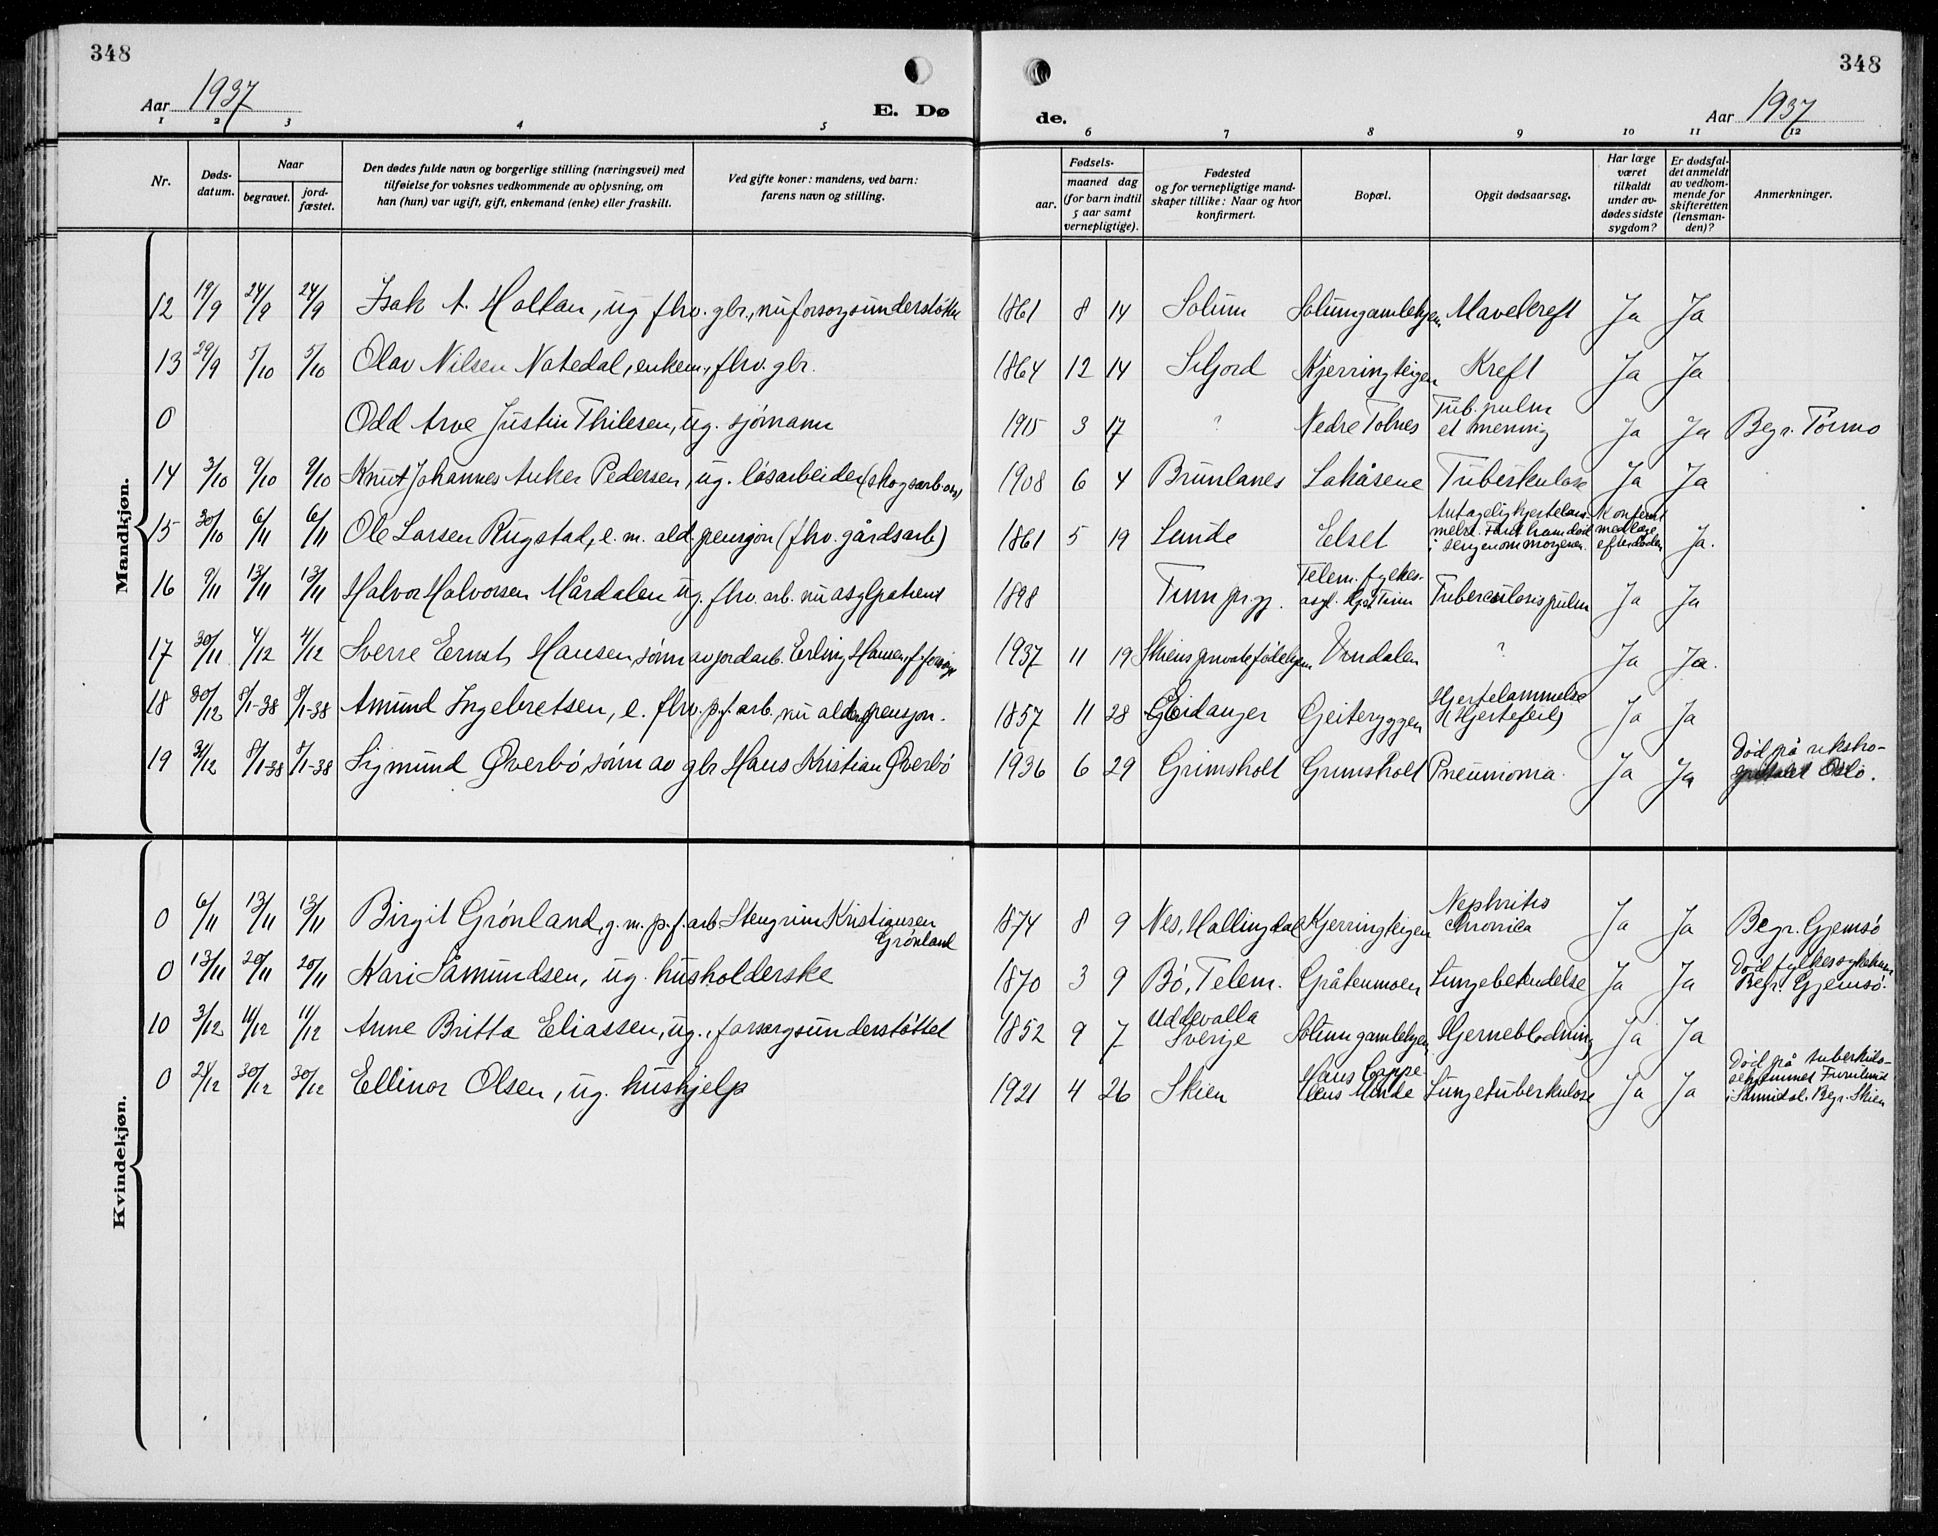 348
348
Aar 1937
E. Dø
de.
Aar 1937
1 2 3 4 5 6 7 8 9 10 11 12
Nr.
Døds-
datum.
Naar
begravet.
jord-
fæstet.
Den dødes fulde navn og borgerlige stilling (næringsvei) med
tilføielse for voksnes vedkommende av oplysning, om
han (hun) var ugift, gift, enkemand (enke) eller fraskilt.
Ved gifte koner: mandens, ved barn:
farens navn og stilling.
Fødsels-
aar.
maaned dag
(for barn indtil
5 aar samt
vernepligtige).
Fødested
og for vernepligtige mand-
skaper tillike: Naar og hvor
konfirmert.
Bopæl.
Opgit dødsaarsag.
Har læge
været
tilkaldt
under av-
dødes sidste
sygdom?
Er dødsfal-
det anmeldt
av vedkom-
mende for
skifteretten
(lensman-
den)?
Anmerkninger.
Mandkjøn.
12 19/9 24/9 24/9 Isak A. Holtan, ug fhv. gbr., nu forsorgsunderstøttet 1861 8 14 Solum Solumgamlehjem Mavekreft Ja Ja
13 29/9 5/10 5/10 Olav Nilsen Natedal, enkem., fhv. gbr. 1864 12 14 Siljord Kjerringteigen Kreft Ja Ja
0 Odd Arve Justin Thilesen, ug. sjømann 1915 3 17 ? Nedre Tolnes Tub. pulm
et mening Ja Ja Begr. Tørmo
14 3/10 9/10 9/10 Knut Johannes Anker Pedersen, ug. løsarbeider (skogsarb. 1908 6 4 Brunlanes Lakåsene Tuberkulose Ja Ja
15 30/10 6/11 6/11 Ole Larsen Rugstad, e. m. ald. pensjon (fhv. gårdsarb) 1861 5 19 Lunde Elset Antagelig hjertelam-
melse. Fant ham død
i sengen om morgenen. Konferert
med læge
efter døden Ja.
16 9/11 13/11 13/11 Halvor Halvorsen Mårdalen ug. fhv. arb. nu asylpatient 1898 Tinn pr.gj. Telem. fylkes-
asyl. Tinn Tuberculosis pulm Ja Ja
17 30/11 4/12 4/12 Sverre Ernst Hansen, sønn av jordarb. Erling Hansen, 1937 11 19 Skiens private fødehjem Vindalen ? Ja Ja.
18 30/12 8/1-38 8/1-38 Amund Ingebretsen, e. fhv. p.f. arb. nu alderspensjon. 1857 11 28 Eidanger Geiteryggen Hjertelammelse
(Hjertefeil) Ja Ja
19 31/12 8/1-38 8/1-38 Sigmund Øverbø, sønn av gbr Hans Kristian Øverbø 1936 6 29 Grimsholt Grimsholt Pneumonia. Ja Ja Død på riksho-
spitalet Oslo.
Kvindekjøn.
0 6/11 13/11 13/11 Birgit Grønland, g. m. p.f. arb Stengrim Kristiansen
Grønland 1874 8 9 Nes, Hallingdal Kjerringteigen Nephritis
chronica Ja Ja Begr. Gjemsø
0 13/11 20/11 20/11 Kari Såmundsen, ug. husholderske 1870 3 9 Bø, Telem. Gråtenmoen Lungebetendelse Ja Ja Død fylkessykehuset
Begr. Gjemsø.
10 3/12 11/12 11/12 Anne Britta Eliassen, ug., forsorgsunderstøttet 1852 9 7 Uddevalla
Sverige Solum gamlehjem Hjerneblødning Ja Ja
0 21/12 30/12 30/12 Ellinor Olsen, ug. hushjelp 1921 4 26 Skien Hans Cappe
lens Minde Lungetuberkulose Ja Ja Død på tuberkulo-
sehjemmet Furulund
i Sannidal. Begr. Skien